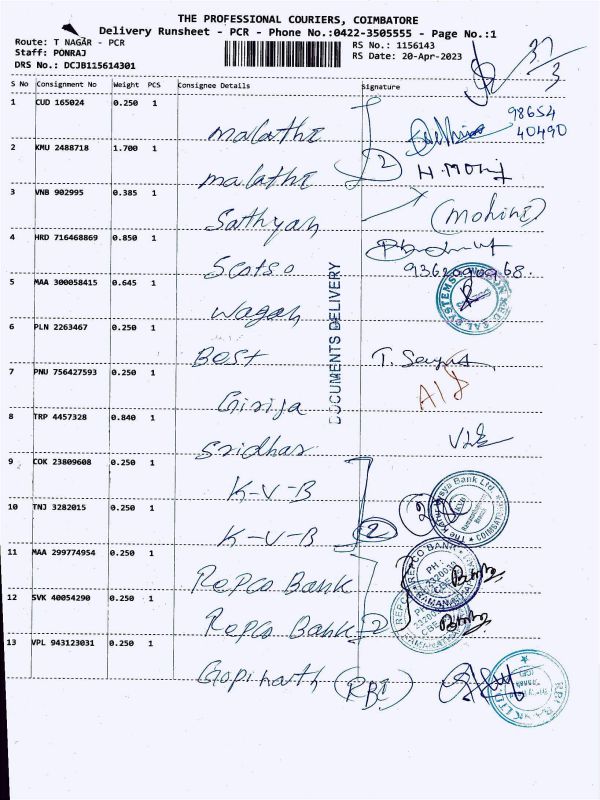 THE PROFESSIONAL COURIERS, COIMBATORE
Delivery Runsheet - PCR - Phone No.:0422-3505555 - Page No.:1
Route: T NAGAR - PCR
Staff: PONRAJ
DRS No.: DCJB115614301
RS No.: 1156143
RS Date: 20-Apr-2023
37/3
S No Consignment No Weight PCS Consignee Details Signature
1 CUD 165024 0.250 1 malathi
98654
40490
2 KMU 2488718 1.700 1 malathi 2 H.MOhij
3 VNB 902995 0.385 1 Sathyan (mohini)
4 HRD 716468869 0.850 1 Scotso
5 MAA 300058415 0.645 1 Wagan
6 PLN 2263467 0.250 1 Best
7 PNU 756427593 0.250 1 Girija
8 TRP 4457328 0.840 1 Sridhar
9 COK 23809608 0.250 1 K-V-B
10 TNJ 3282015 0.250 1 K-V-B 2
11 MAA 299774954 0.250 1 Repco Bank
12 SVK 40054290 0.250 1 Repco Bank 2
13 VPL 943123031 0.250 1 Gopinath (RBI)
DOCUMENTS DELIVERY
REPCO BANK
RBL BANK LTD